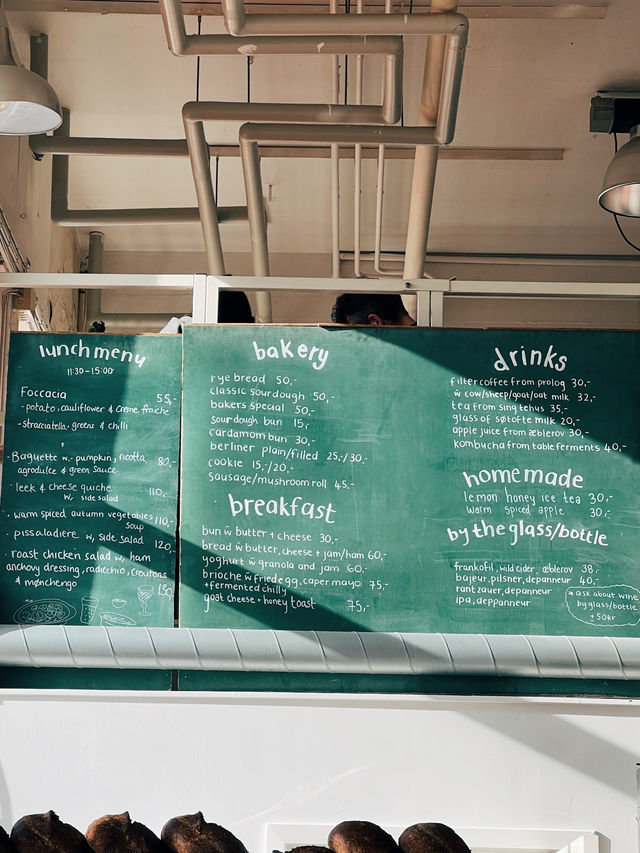 lunch menu
11:30-15:00
Foccacia 55,-
-potato, cauliflower & creme fraiche
-stracciatella, greens & chilli
· Baguette w. pumpkin, ricotta, 80,-
agrodulce & green sauce
· leek & cheese quiche 110,-
w, side salad
· warm spiced autumn vegetables 110,-
soup
· pissaladiere w, side salad 120,-
· roast chicken salad w, ham
anchovy dressing, radicchio, croutons
& manchengo 130
bakery
rye bread 50,-
classic sourdough 50,-
bakers special 50,-
sourdough bun 15,-
cardamom bun 30,-
berliner plain/filled 25,-/30,-
cookie 15,-/20,-
sausage/mushroom roll 45,-
breakfast
bun w butter + cheese 30,-
bread w butter, cheese + jam/ham 60,-
yoghurt w granola and jam 60,-
brioche w fried egg, caper mayo 75,-
+fermented chilly
goat cheese + honey toast 75,-
drinks
filter coffee from prolog 30,-
w cow/sheep/goat/oat milk 32,-
tea from sing tehus 35,-
glass of søtofte milk 20,-
apple juice from æblerov 30,-
kombucha from table ferments 40,-
homemade
lemon honey ice tea 30,-
warm spiced apple 30,-
by the glass/bottle
frankofil, wild cider, æblerov 38,-
bajeur, pilsner, depanneur 40,-
rantzauer, depanneur
ipa, deppanneur
* ask about wine
by glass/bottle
± 50kr